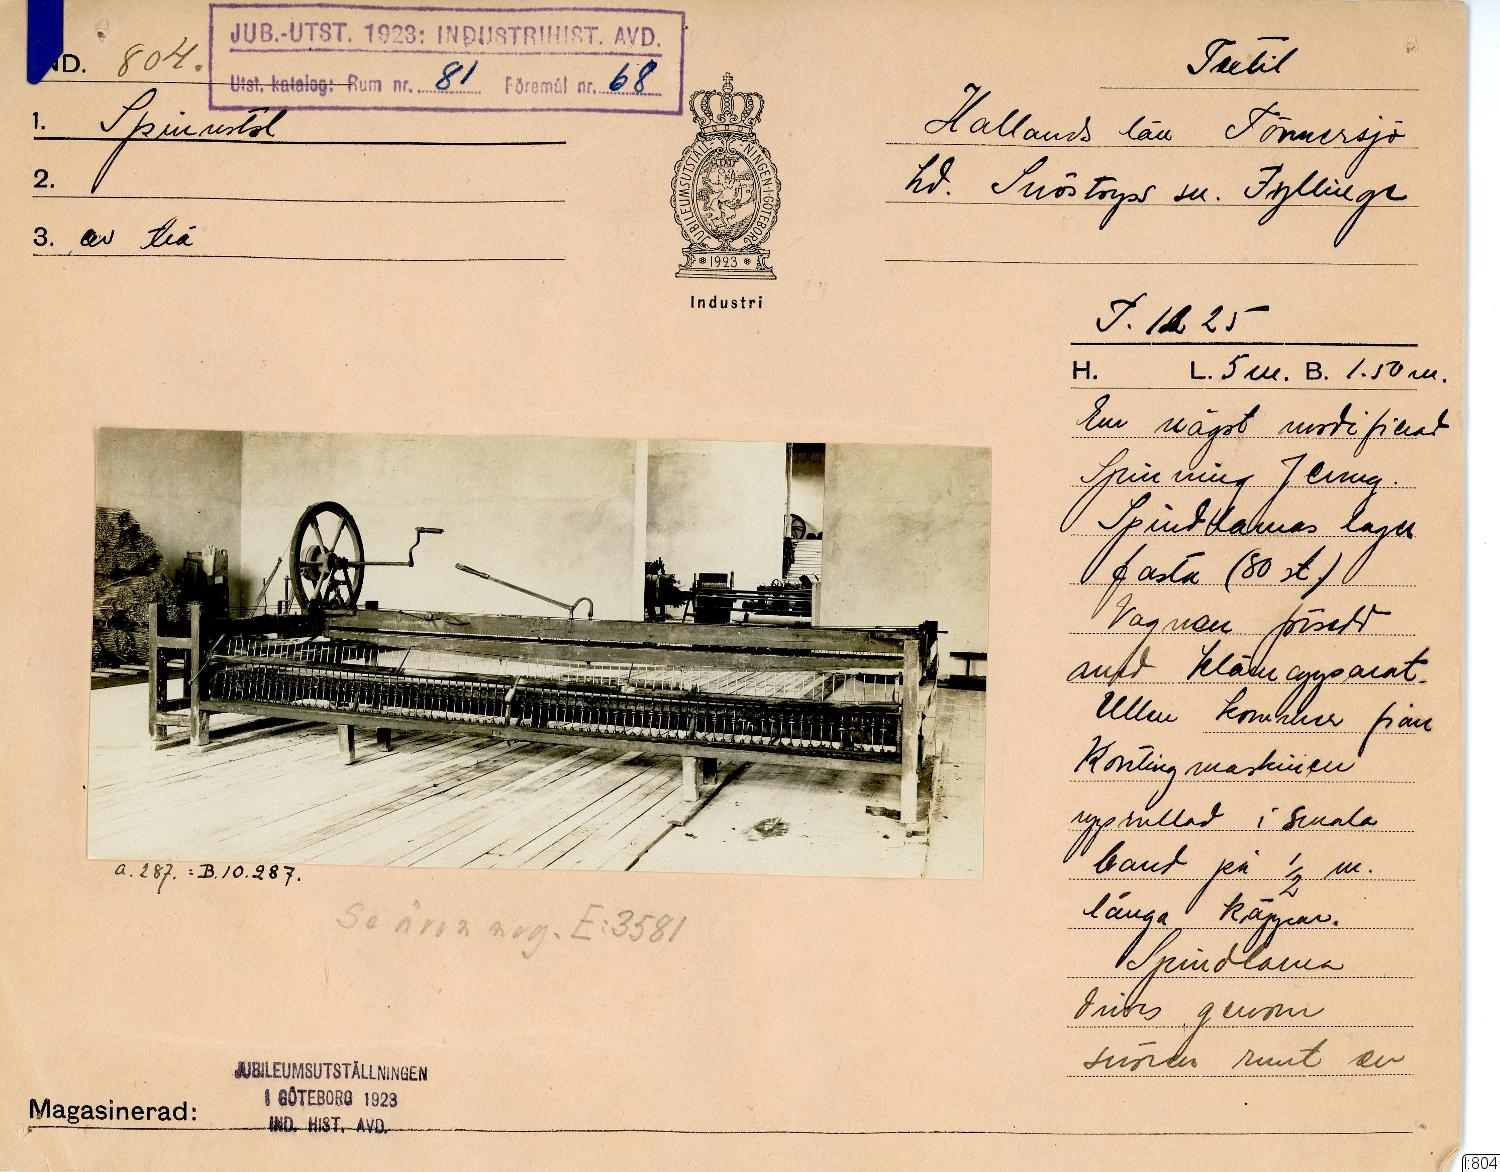 IND. 804.
JUB.-UTST. 1923: INDUSTRIHIST. AVD.
Utst. katalog: Rum nr. 81 Föremål nr. 68
1. Spinnstol
2.
3. av trä
JUBILEUMSUTSTÄLLNINGEN I GÖTEBORG
* 1923 *
Industri
Textil
Hallands län Tönnersjö
hd. Snöstorps sn. Fyllinge
T. 25
H. L. 5 m. B. 1.50 m.
En något modifierad
Spinning Jenny.
Spindlarnas lager
fasta (80 st)
Vagnen försedd
med klämapparat.
Ullen kommer från
Kardingmaskinen
upprullad i smala
band på 1/2 m.
långa käppar.
Spindlarna
drivs genom
snören runt en
a. 287. : B.10.287.
Se även neg. E:3581
JUBILEUMSUTSTÄLLNINGEN
I GÖTEBORG 1923
IND. HIST. AVD.
Magasinerad:
I:804